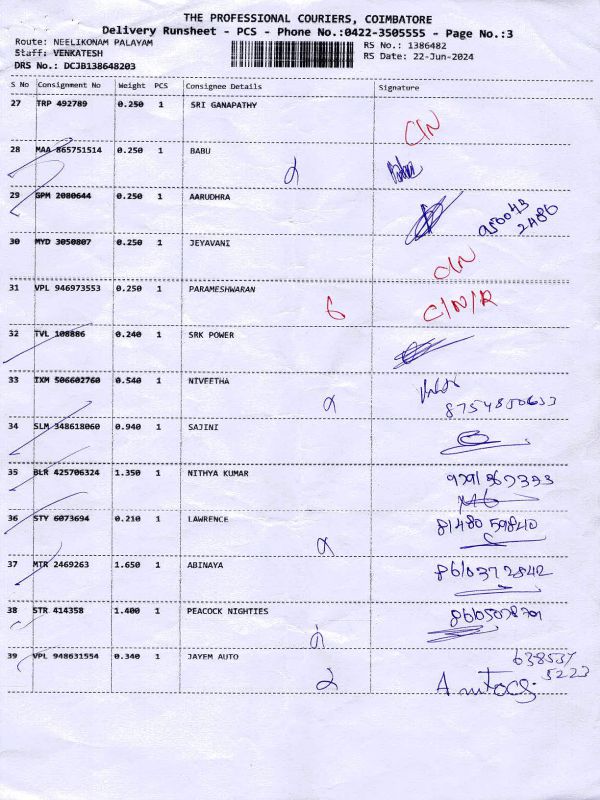 THE PROFESSIONAL COURIERS, COIMBATORE
Delivery Runsheet - PCS - Phone No.:0422-3505555 - Page No.:3
Route: NEELIKONAM PALAYAM
RS No.: 1386482
Staff: VENKATESH
RS Date: 22-Jun-2024
DRS No.: DCJB138648203
S No Consignment No Weight PCS Consignee Details Signature
27 TRP 492789 0.250 1 SRI GANAPATHY
C/N
28 MAA 865751514 0.250 1 BABU
29 GPM 2080644 0.250 1 AARUDHRA
950043
2486
30 MYD 3050807 0.250 1 JEYAVANI
31 VPL 946973553 0.250 1 PARAMESHWARAN
C/N/R
32 TVL 108886 0.240 1 SRK POWER
33 IXM 506602760 0.540 1 NIVEETHA
34 SLM 348618060 0.940 1 SAJINI
35 BLR 425706324 1.350 1 NITHYA KUMAR
36 STY 6073694 0.210 1 LAWRENCE
8148059840
37 MTR 2469263 1.650 1 ABINAYA
8610372842
38 STR 414358 1.400 1 PEACOCK NIGHTIES
39 VPL 948631554 0.340 1 JAYEM AUTO
638537
5223